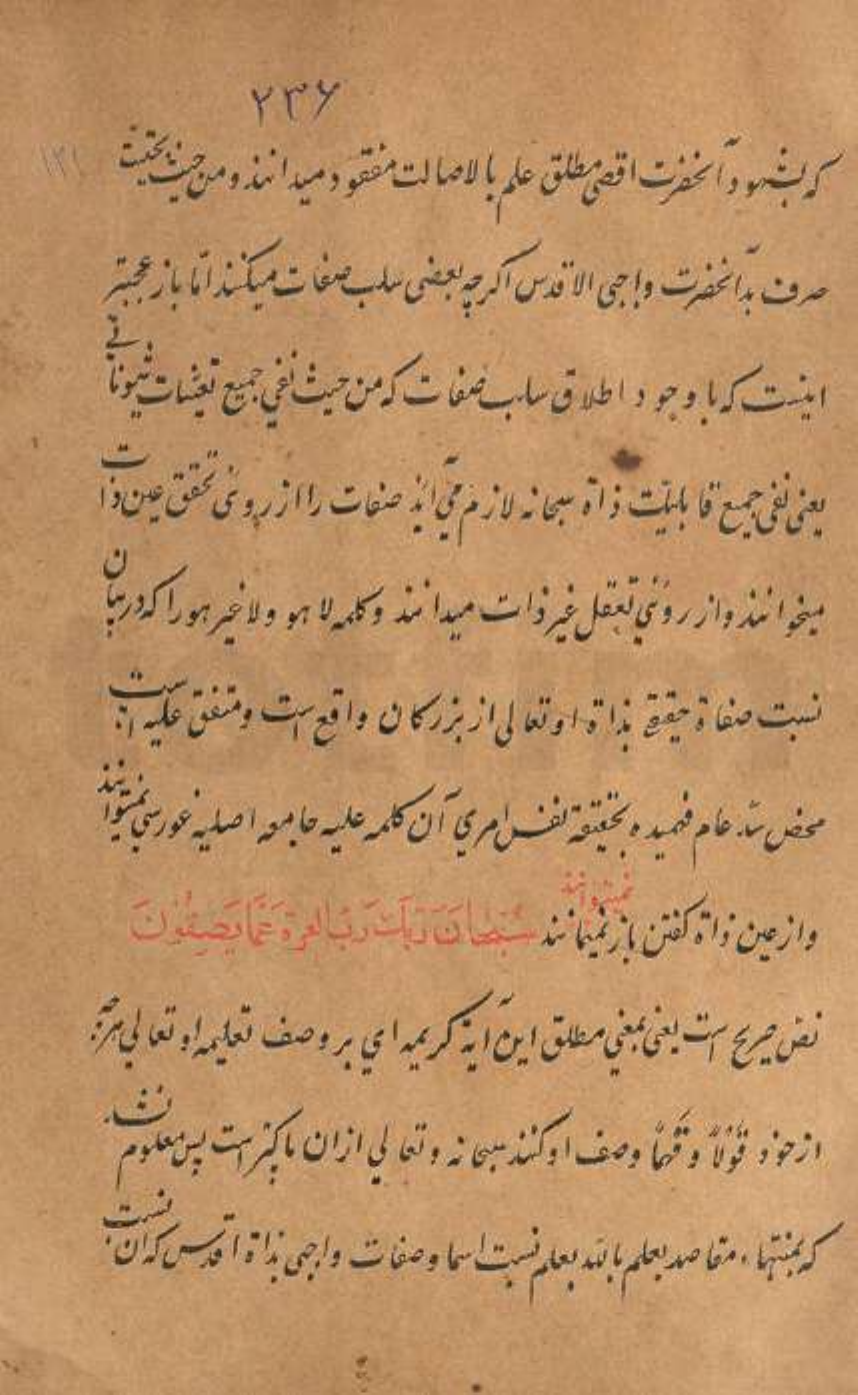 ۲۳۶
۱۳۱
که بشهود آنحضرت اقصی مطلق علم بالاصالت مفقود میدانند و من حیث بحتیت
صرف بدآنحضرت واجبی الاقدس اکرچه بعضی سلب صفات میکنند امّا باز عجبتر
اینست که با وجود اطلاق سلب صفات که من حیث نفی جمیع تعیّنات شیوناتی
یعنی نفی جمیع قابلیّت ذاة سبحانه لازم می آید صفات را از روئ تحقق عین ذات
میخوانند و از روئی تعقل غیر ذات میدانند و کلمه لا هو و لا غیر هو را که در بیان
نسبت صفاة حقیقے بذاة او تعالی از بزرکان واقع است و متفق علیه است
محض عام فهمیده بحقیقة نفس امری آن کلمه علیه جامعه اصلیه غور سی نمیتوانند
نمیتوانند
و از عین ذاة کفتن باز نمیمانند سُبْحَانَ رَبِّكَ رَبِّ الْعِزَةِ عَمَّا يَصِفُونَ
نص صریح است یعنی بمعنی مطلق این آیة کریمه ای بر وصف تعلیمه او تعالی هرچه
از خود قَوْلاً و فَهْماً وصف او کنند سبحانه و تعالی ازان پاکتر است پس معلوم شد
که بمنتهاء مقاصد بعلم بالله بعلم نسبت اسما و صفات واجبی بذاة اقدس که ان نسبت